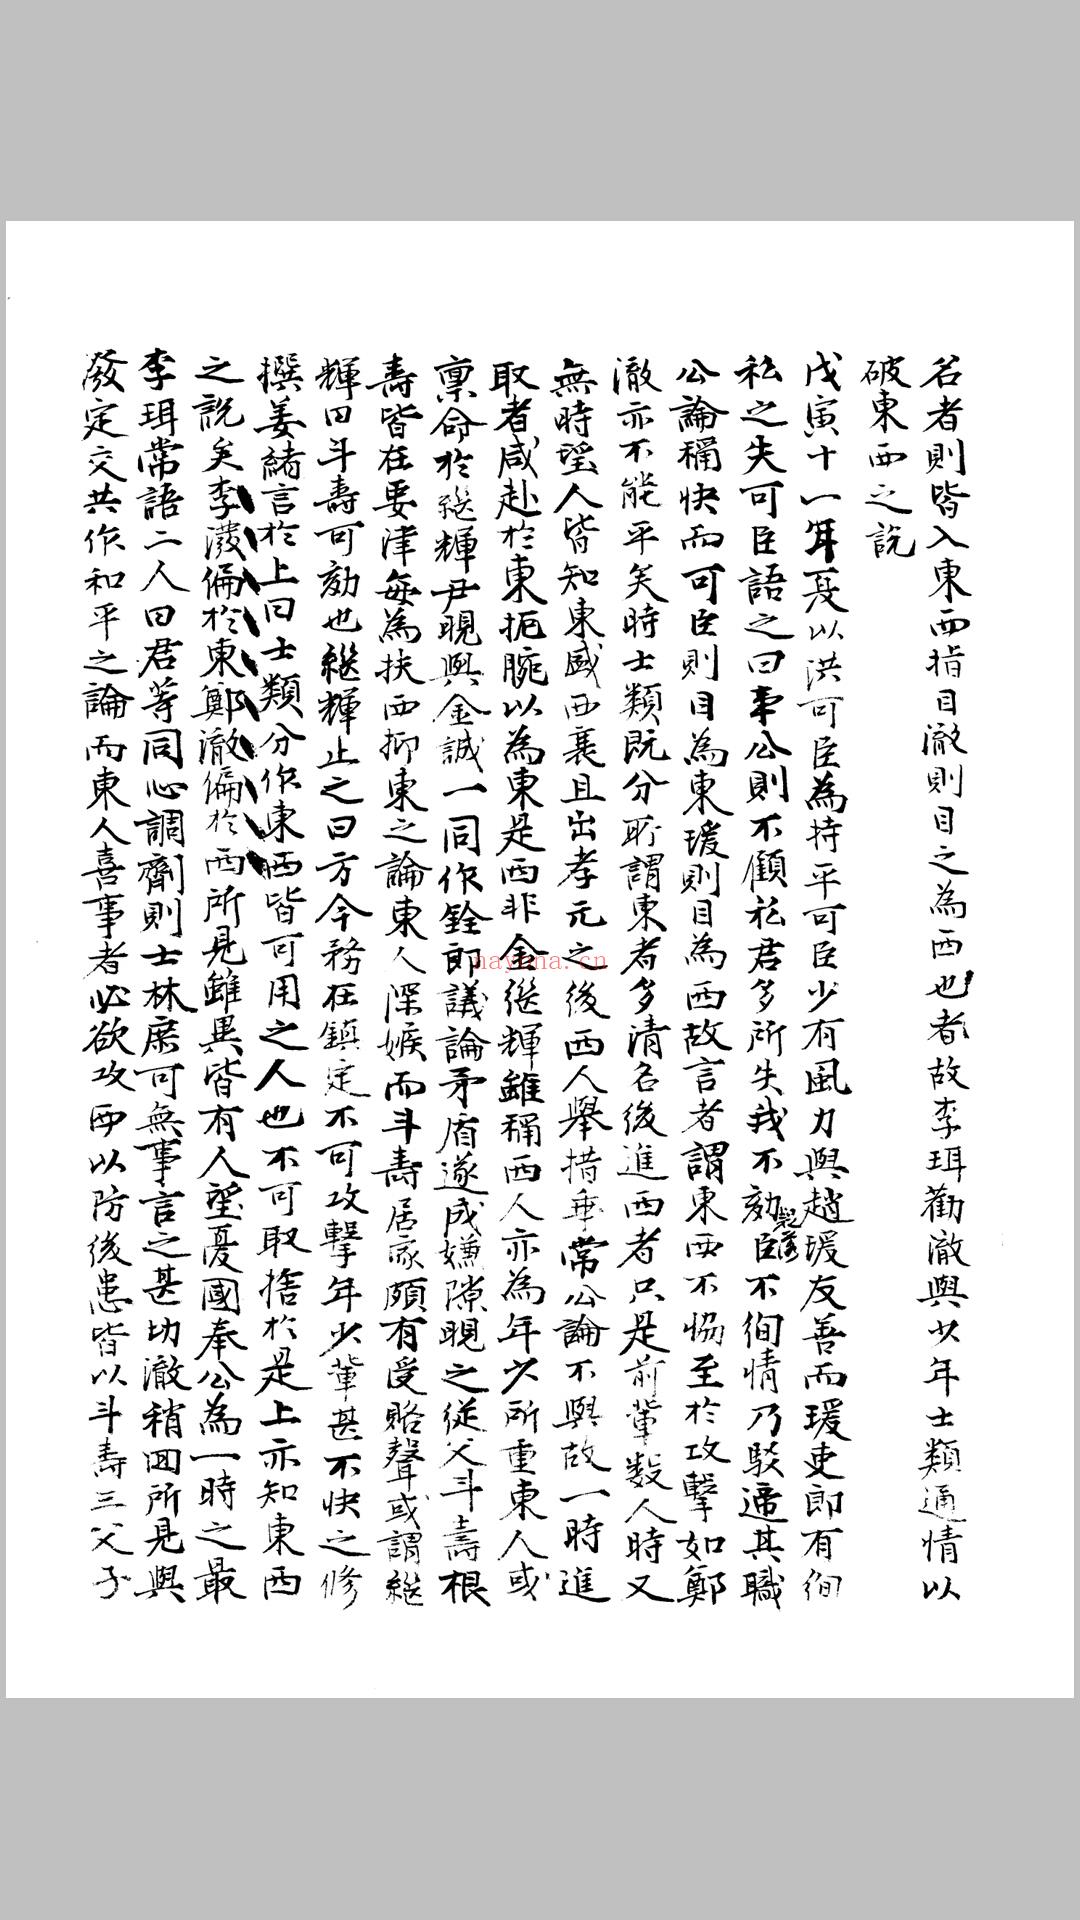 名者則皆入東西指目澈則目之為西也者故李珥勸澈與少年士類通情以
破東西之說
戊寅十一年夏以洪可臣為持平可臣少有風力與趙瑗友善而瑗吏郎有徇
私之失可臣語之曰事公則不顧私君多所失我不劾君不徇情乃駁遞其職
公論稱快而可臣則目為東瑗則目為西故言者謂東西不恊至於攻擊如鄭
澈亦不能平矣時士類既分所謂東者多清名後進西者只是前輩數人時又
無時望人皆知東盛西衰且出孝元之後西人舉措乖常公論不與故一時進
取者咸赴於東扼腕以為東是西非金繼輝雖稱西人亦為年少所重東人或
稟命於繼輝尹晛與金誠一同作銓郎議論矛盾遂成嫌隙晛之從父斗壽根
壽皆在要津每為扶西抑東之論東人深嫉而斗壽居家頗有受賂聲或謂繼
輝曰斗壽可劾也繼輝止之曰方今務在鎮定不可攻擊年少輩甚不快之修
撰姜緒言於上曰士類分作東西皆可用之人也不可取捨於是上亦知東西
之說矣李潑偏於東鄭澈偏於西所見雖異皆有人望憂國奉公為一時之最
李珥常語二人曰君等同心調劑則士林庶可無事言之甚切澈稍回所見與
潑定交共作和平之論而東人喜事者必欲攻西以防後患皆以斗壽三父子
nayona.cn